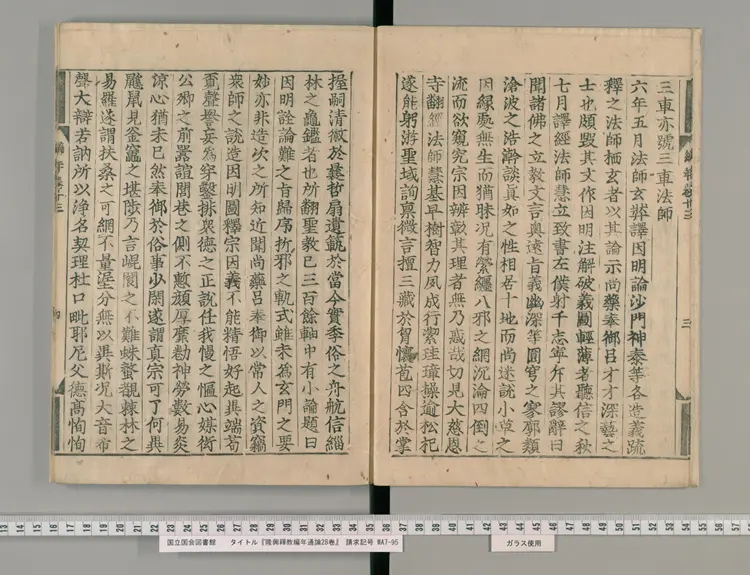 三車亦號三車法師
六年五月法師玄奘譯因明論沙門神泰等各造義疏
釋之法師栖玄者以其論示尚藥奉御呂才才深藝之
士也頗毀其文作因明注解破義圖輕薄者聽信之秋
七月譯經法師慧立致書左僕射于志寧斥其謬辭曰
聞諸佛之立教文言奧遠旨義幽深等圓穹之寥廓類
滄波之浩澣談真如之性相居十地而尚迷說小草之
因緣處無生而猶昧况有縈纏八邪之網沉淪四倒之
流而欲窺究宗因辨彰其理者無乃惑哉切見大慈恩
寺翻經法師慧基早樹智力夙成行潔珪璋操逾松杞
遂能躬游聖域詢稟微言擅三藏於胷懷苞四含於掌
握嗣清徽於曩哲扇遺範於當今實季俗之舟航信緇
林之龜鑑者也所翻聖教已三百餘軸中有小論題曰
因明詮論難之旨歸序折邪之軌式雖未為玄門之要
妙亦非造次之所知近聞尚藥呂奉御以常人之資竊
衆師之說造因明圖釋宗因義不能精悟好起異端苟
覓聲譽妄為穿鑿排衆德之正說任我慢之褊心媒衒
公卿之前囂諠閭巷之側不慙顏厚靡勸神勞數易炎
涼心猶未已然奉御於俗事少閑遂謂真宗可了何異
鼷鼠見釜竈之堪陟乃言崐閬之不難蛛蝥覩棘林之
易羅遂謂扶桑之可網不量涯分無以異斯况大音希
聲大辯若訥所以淨名契理杜口毗耶尼父德高恂恂
13 14 15 16 17 18 19 20 21 22 23 24 25 26 27 28 29 30 31 32 33 34 35 36 37 38 39 40 41 42 43 44 45 46 47 48 49 50 51 52 53 54
国立国会図書館 タイトル『隆興釋教編年通論28巻』 請求記号 WA7-95
ガラス使用